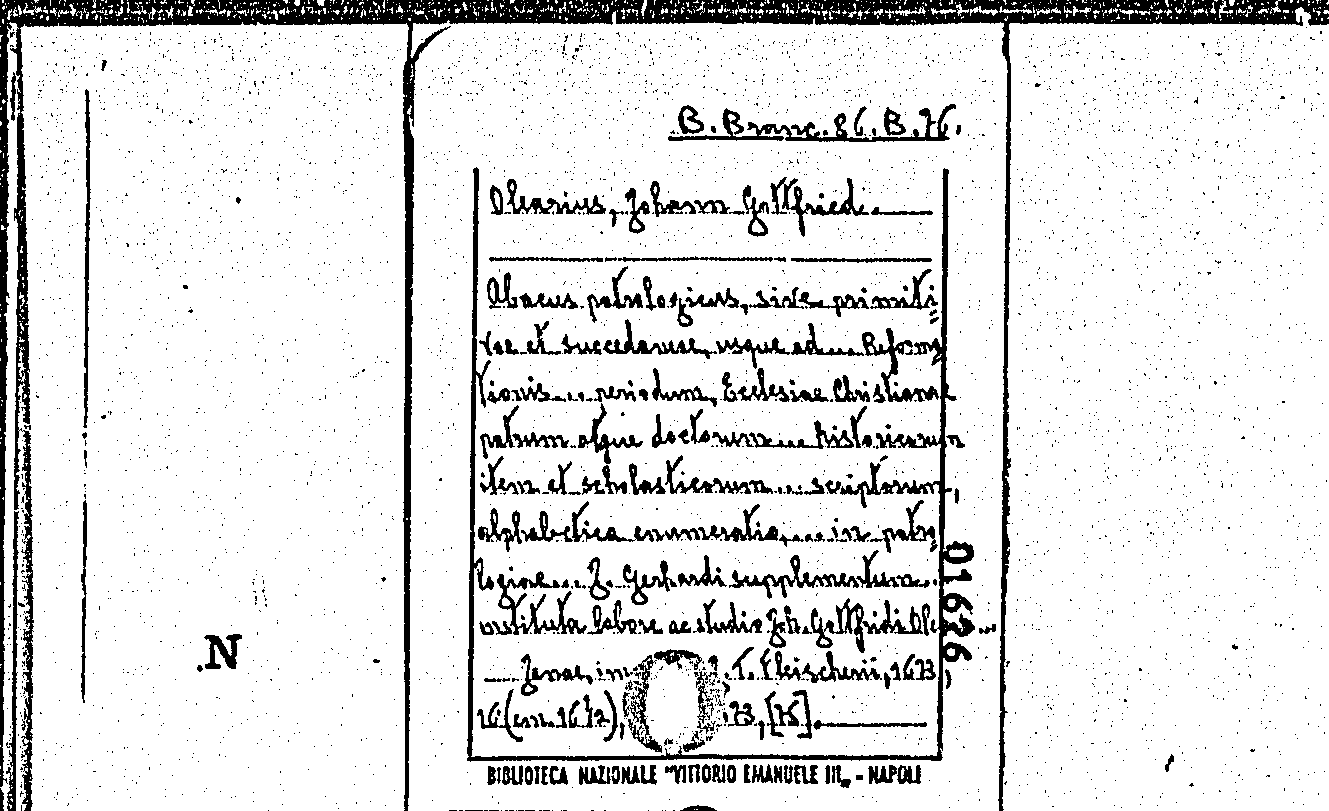 B. Branc. 86. B. 76.
Olearius, Johann Gottfried.
Abacus patrologicus, sive primiti=
vae et succedaneae, usque ad... Reforma=
tionis... periodum, Ecclesiae Christianae
patrum atque doctorum... historicorum
item et scholasticorum... scriptorum,
alphabetica enumeratio,... in patro=
logiae... J. Gerhardi supplementum..
instituta labore ac studio Joh. Gottfridi Ole...
Jenae, im T. Fleischerii, 1673,
16 (cm. 16 ½), 73, [75].
01626
.N
BIBLIOTECA NAZIONALE "VITTORIO EMANUELE III„ - NAPOLI